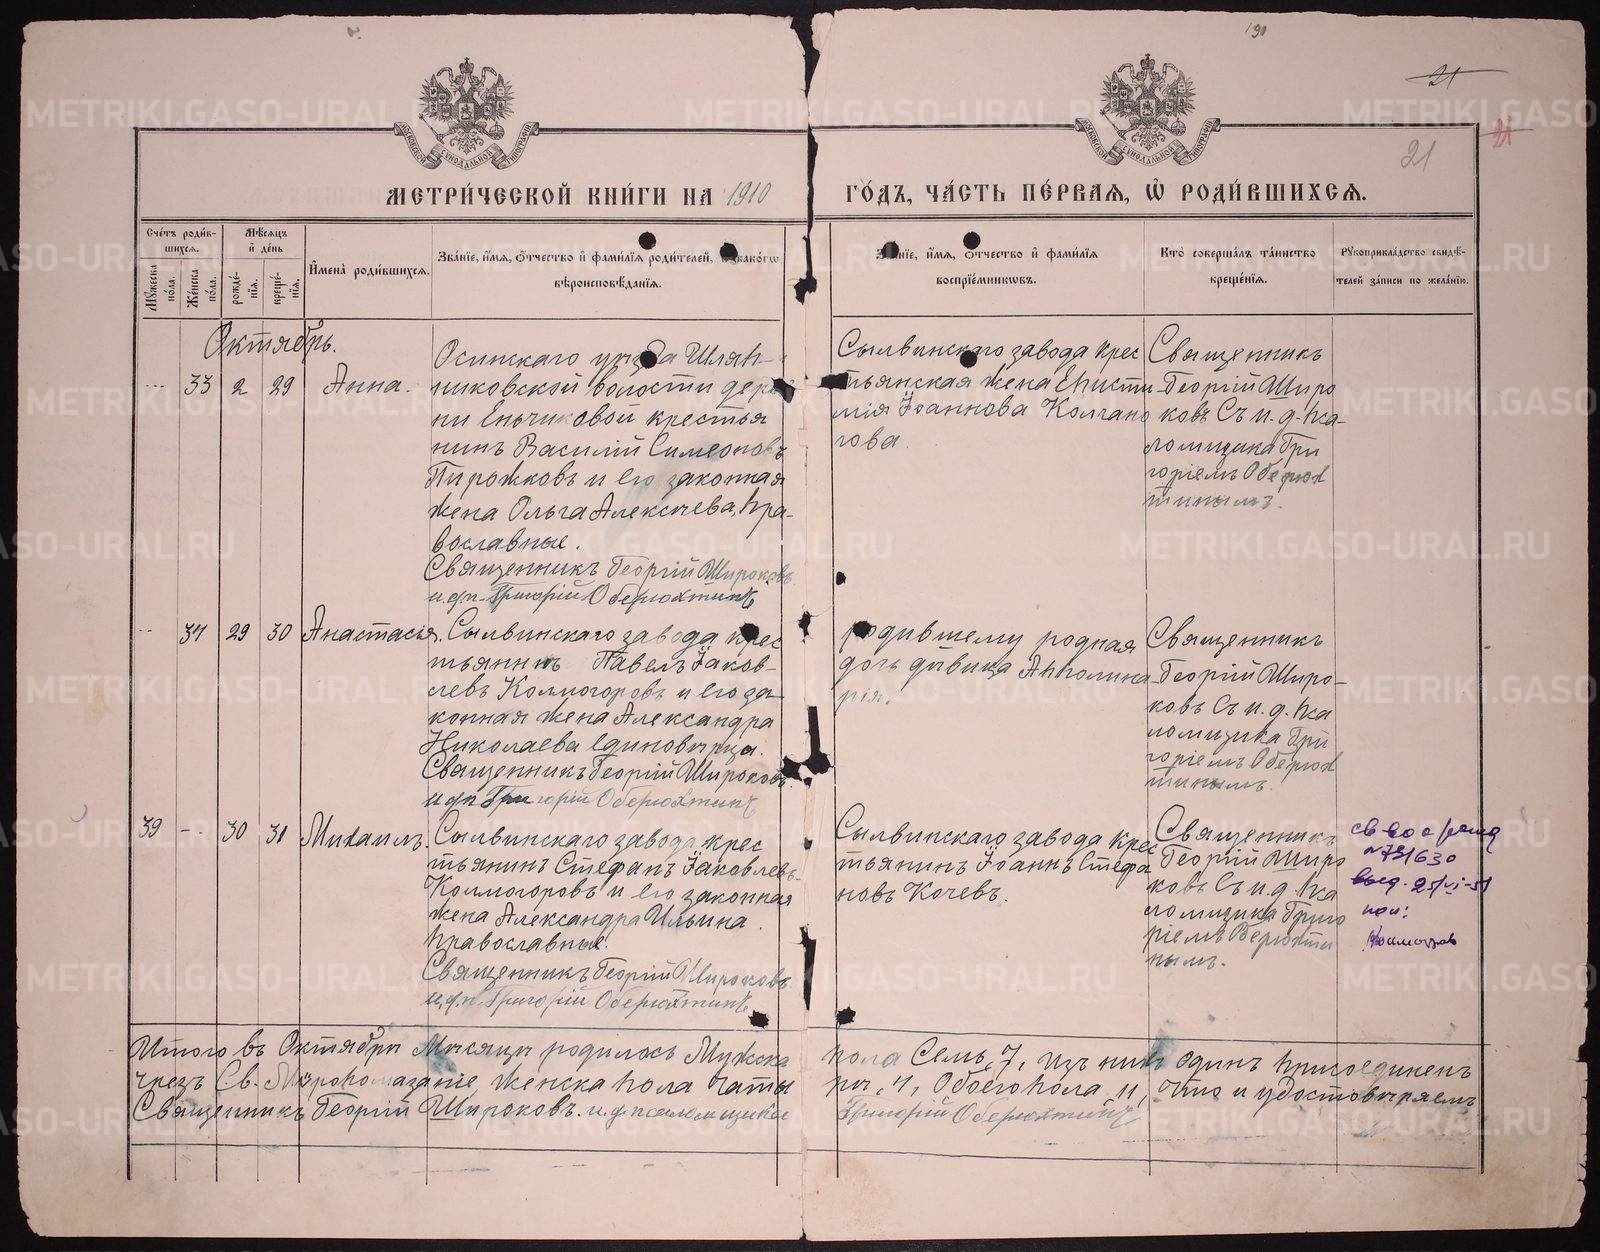 190
21
21
21
МОСКОВСКОЙ СѴНОДАЛЬНОЙ ТИПОГРАФІИ
МОСКОВСКОЙ СѴНОДАЛЬНОЙ ТИПОГРАФІИ
МЕТРИ́ЧЕСКОЙ КНИ́ГИ НА 1910
ГО́ДЪ, ЧА́СТЬ ПЕ́РВАЯ, Ѽ РОДИ́ВШИХСЯ.
Сче́тъ роди́в-
шихся.
Мѣ́сяцъ
и҆ де́нь
Мꙋ́жеска по́ла.
Же́нска по́ла.
рожде́-
нїя.
креще́-
нїя.
И҆мена̀ роди́вшихся.
Зва́нїе, и҆́мя, ѻ҆́тчество и҆ фами́лїя роди́телей,
вѣроисповѣ́данїя.
и҆́мя, ѻ҆́тчество и҆ фами́лїя
воспрїе́мникѡвъ.
Кто̀ соверша́лъ та́инство
креще́нїя.
Рꙋкоприкла́дство свидѣ́-
телей за́писи по жела́нїю.
Октябрь.
33 2 29 Анна.
Осинскаго уѣзда Шляп-
никовской волости дерев
ни Еньчиковой крестья
нинъ Василій Симеоновъ
Пирожковъ и его законная
жена Ольга Алексѣева, пра-
вославные.
Священникъ Георгій Широковъ
и.д.п. Григорій Оберюхтинъ
Сылвинскаго завода крес
тьянская жена Еписти-
мія Іоаннова Колчано
гова.
Священникъ
Георгій Широ
ковъ Съ и. д. пса-
ломщика Гри
горіемъ Оберюх
тинымъ.
34 29 30 Анастасія.
Сылвинскаго завода крес
тьянинъ Павелъ Іаков-
левъ Колмогоровъ и его за-
конная жена Александра
Николаева единовѣрца.
Священникъ Георгій Широковъ.
и.д.п. Григорій Оберюхтинъ
родившему родная
дочь дѣвица Апполина-
рія.
Священникъ
Георгій Широ-
ковъ Съ и. д. пса
ломщика Гри
горіемъ Оберюх
тинымъ.
39 30 31 Михаилъ.
Сылвинскаго завода крес
тьянинъ Стефанъ Іаковлевъ-
Колмогоровъ и его законная
жена Александра Ильина.
православные.
Священникъ Георгій Широковъ.
и.д.п. Григорій Оберюхтинъ
Сылвинскаго завода крес
тьянинъ Іоаннъ Стефа
новъ Кочевъ.
Священникъ
Георгій Широ
ковъ Съ и. д. пса
ломщика Григо
ріемъ Оберюхти
нымъ.
св во о
выд.
Итого въ Октябрѣ Мѣсяцѣ родилось Мужска
пола Семь, 7, изъ нихъ одинъ присоединенъ
чрезъ Св. Мѵропомазаніе, женска пола Четы
ре, 4, Обоего пола, 11, Что и удостовѣряемъ
Священникъ Георгій Широковъ. и.д. псаломщика
Григорій Оберюхтинъ
METRIKI.GASO-URAL.RU